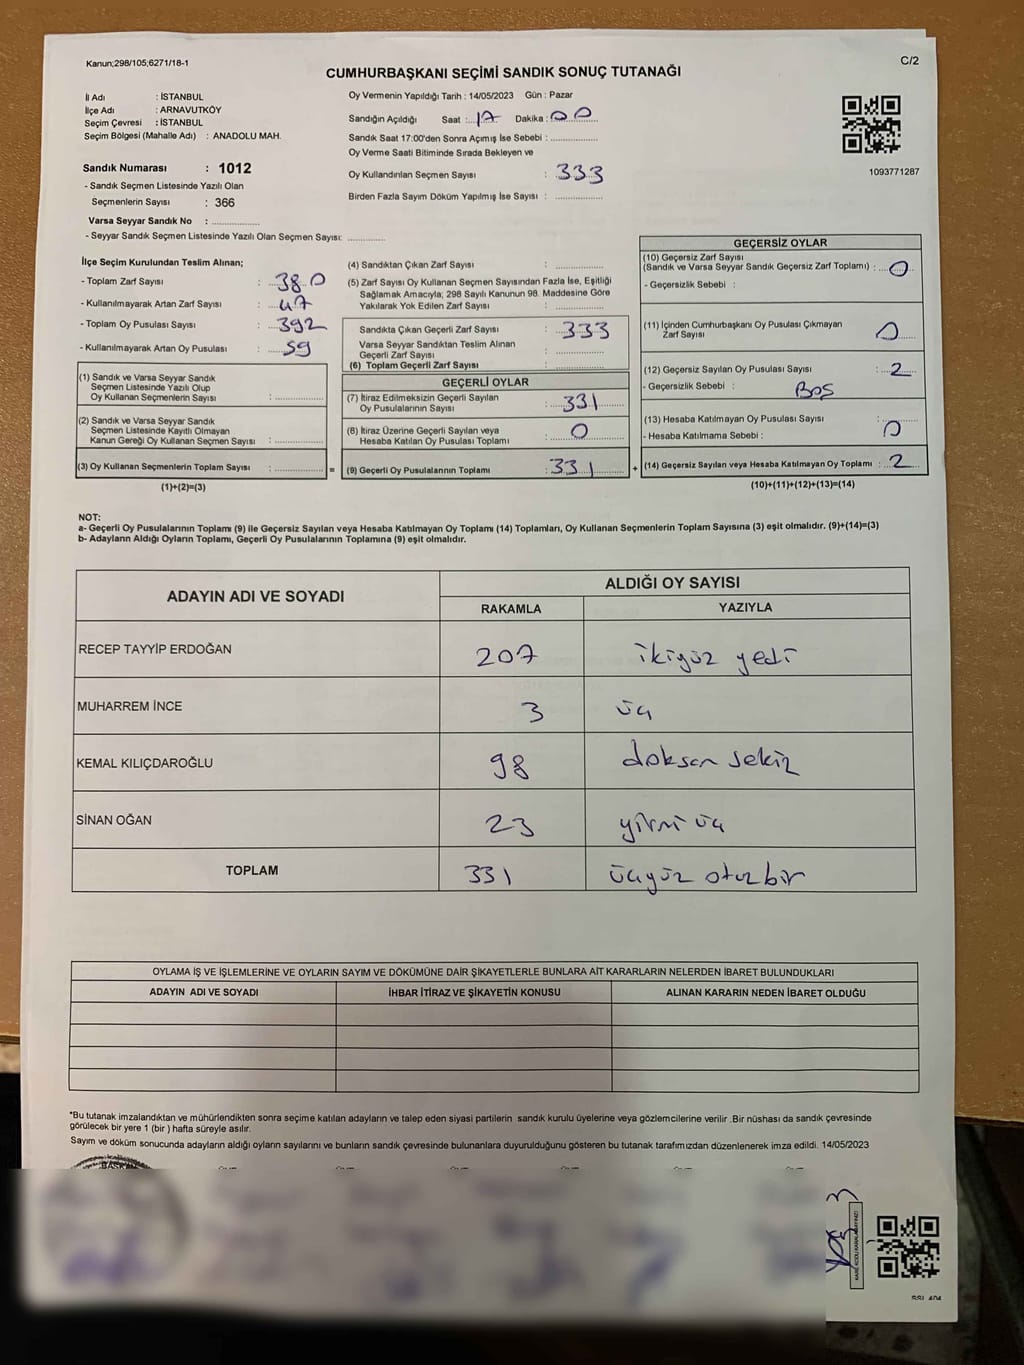 Kanun;298/105;6271/18-1
C/2
CUMHURBAŞKANI SEÇİMİ SANDIK SONUÇ TUTANAĞI
İl Adı : İSTANBUL
İlçe Adı : ARNAVUTKÖY
Seçim Çevresi : İSTANBUL
Seçim Bölgesi (Mahalle Adı) : ANADOLU MAH.
Sandık Numarası : 1012
- Sandık Seçmen Listesinde Yazılı Olan
Seçmenlerin Sayısı : 366
Varsa Seyyar Sandık No : ..............
- Seyyar Sandık Seçmen Listesinde Yazılı Olan Seçmen Sayısı: ............
Oy Vermenin Yapıldığı Tarih : 14/05/2023 Gün : Pazar
Sandığın Açıldığı Saat : 17 Dakika : 00
Sandık Saat 17:00'den Sonra Açımış İse Sebebi : ..............
Oy Verme Saati Bitiminde Sırada Bekleyen ve
Oy Kullandırılan Seçmen Sayısı : 333
Birden Fazla Sayım Döküm Yapılmış İse Sayısı : ..............
1093771287
İlçe Seçim Kurulundan Teslim Alınan;
- Toplam Zarf Sayısı : 380
- Kullanılmayarak Artan Zarf Sayısı : 47
- Toplam Oy Pusulası Sayısı : 392
- Kullanılmayarak Artan Oy Pusulası : 59
(1) Sandık ve Varsa Seyyar Sandık
Seçmen Listesinde Yazılı Olup
Oy Kullanan Seçmenlerin Sayısı : ..............
(2) Sandık ve Varsa Seyyar Sandık
Seçmen Listesinde Kayıtlı Olmayan
Kanun Gereği Oy Kullanan Seçmen Sayısı : ..............
(3) Oy Kullanan Seçmenlerin Toplam Sayısı : .............. =
(1)+(2)=(3)
(4) Sandıktan Çıkan Zarf Sayısı : ..............
(5) Zarf Sayısı Oy Kullanan Seçmen Sayısından Fazla İse, Eşitliği
Sağlamak Amacıyla; 298 Sayılı Kanunun 98. Maddesine Göre
Yakılarak Yok Edilen Zarf Sayısı : ..............
Sandıkta Çıkan Geçerli Zarf Sayısı : 333
Varsa Seyyar Sandıktan Teslim Alınan
Geçerli Zarf Sayısı : ..............
(6) Toplam Geçerli Zarf Sayısı : ..............
GEÇERLİ OYLAR
(7) İtiraz Edilmeksizin Geçerli Sayılan
Oy Pusulalarının Sayısı : 331
(8) İtiraz Üzerine Geçerli Sayılan veya
Hesaba Katılan Oy Pusulası Toplamı : 0
(9) Geçerli Oy Pusulalarının Toplamı : 331 +
GEÇERSİZ OYLAR
(10) Geçersiz Zarf Sayısı
(Sandık ve Varsa Seyyar Sandık Geçersiz Zarf Toplamı) : 0
- Geçersizlik Sebebi :
(11) İçinden Cumhurbaşkanı Oy Pusulası Çıkmayan
Zarf Sayısı 0
(12) Geçersiz Sayılan Oy Pusulası Sayısı : 2
- Geçersizlik Sebebi : Boş
(13) Hesaba Katılmayan Oy Pusulası Sayısı : 0
- Hesaba Katılmama Sebebi :
(14) Geçersiz Sayılan veya Hesaba Katılmayan Oy Toplamı : 2
(10)+(11)+(12)+(13)=(14)
NOT:
a- Geçerli Oy Pusulalarının Toplamı (9) ile Geçersiz Sayılan veya Hesaba Katılmayan Oy Toplamı (14) Toplamları, Oy Kullanan Seçmenlerin Toplam Sayısına (3) eşit olmalıdır. (9)+(14)=(3)
b- Adayların Aldığı Oyların Toplamı, Geçerli Oy Pusulalarının Toplamına (9) eşit olmalıdır.
ADAYIN ADI VE SOYADI
ALDIĞI OY SAYISI
RAKAMLA YAZIYLA
RECEP TAYYİP ERDOĞAN 207 ikiyüz yedi
MUHARREM İNCE 3 üç
KEMAL KILIÇDAROĞLU 98 doksan sekiz
SİNAN OĞAN 23 yirmi üç
TOPLAM 331 üçyüz otuzbir
OYLAMA İŞ VE İŞLEMLERİNE VE OYLARIN SAYIM VE DÖKÜMÜNE DAİR ŞİKAYETLERLE BUNLARA AİT KARARLARIN NELERDEN İBARET BULUNDUKLARI
ADAYIN ADI VE SOYADI İHBAR İTİRAZ VE ŞİKAYETİN KONUSU ALINAN KARARIN NEDEN İBARET OLDUĞU
*Bu tutanak imzalandıktan ve mühürlendikten sonra seçime katılan adayların ve talep eden siyasi partilerin sandık kurulu üyelerine veya gözlemcilerine verilir .Bir nüshası da sandık çevresinde
görülecek bir yere 1 (bir ) hafta süreyle asılır.
Sayım ve döküm sonucunda adayların aldığı oyların sayılarını ve bunların sandık çevresinde bulunanlara duyurulduğunu gösteren bu tutanak tarafımızdan düzenlenerek imza edildi. 14/05/2023